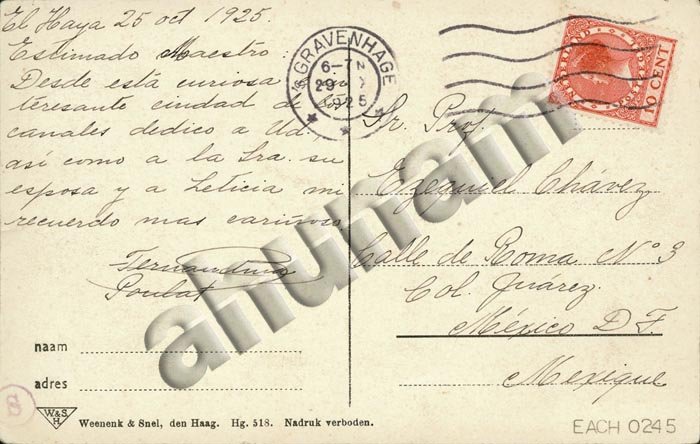 El Haya 25 oct 1925.
Estimado Maestro:
Desde esta curiosa
teresante ciudad de
canales dedico a Ud,
así como a la Sra. su
esposa y a Leticia mi
recuerdo mas cariñoso
Poulat
naam
adres
W&S
H
Weenenk & Snel, den Haag. Hg. 518. Nadruk verboden.
'S GRAVENHAGE
6-7N
29 X
1925
10 CENT
Sr. Prof.
Ezequiel Chávez
Calle de Roma Nº 3
Col. Juárez.
México D. F.
Mexique
ahunam
EACH 0245